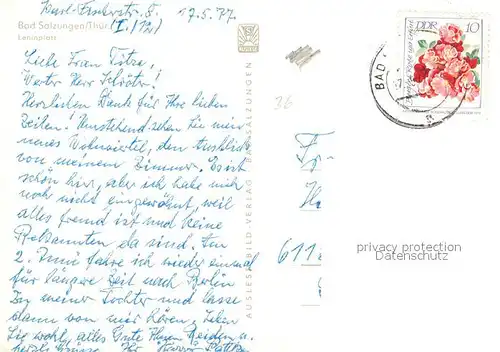 17.5.77.
Bad Salzungen/Thür.
(I./12)
Leninplatz
Liebe Frau Titze,
Werter Herr
Herzlichen Dank für Ihre lieben
Zeilen! Umstehend sehen Sie mein
neues Wohnviertel, den Ausblick
von meinem Zimmer. Es ist
schön hier, aber ich habe mich
noch nicht eingewöhnt, weil
alles fremd ist und keine
Bekannten da sind. Am
2. Juni fahre ich wieder einmal
für längere Zeit nach Berlin
zu meiner Tochter und lasse
dann von mir hören. Leben
Sie wohl, alles Gute Ihnen Beiden u.
herzl. Grüße. Ihr
AUSLESE-BILD-VERLAG BAD SALZUNGEN
36
DDR 10
BAD
611
privacy protection
Datenschutz